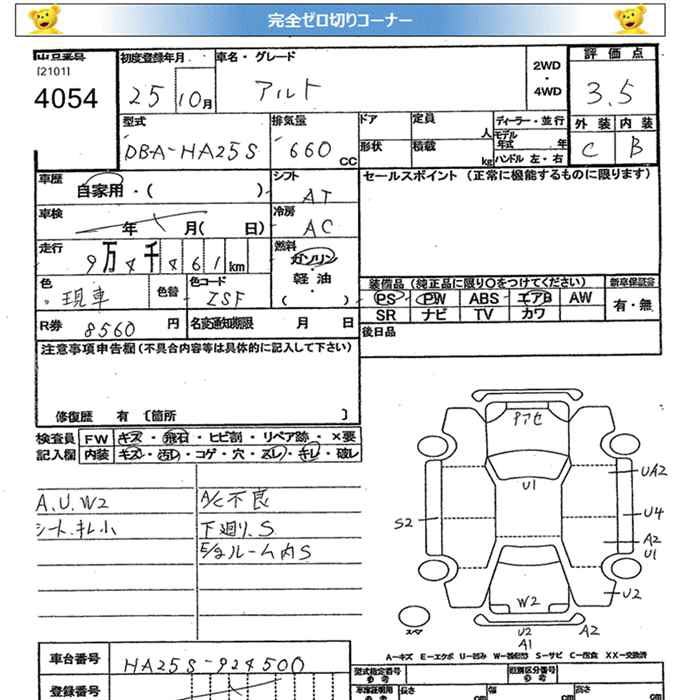 完全ゼロ切りコーナー
出品番号 初度登録年月 車名・グレード 2WD・4WD 評価点
[2101]
4054 25 10月 アルト 3.5
型式 排気量 ドア 定員 人 ディーラー・並行 外装 内装
DBA-HA25S 660 CC 形状 積載 kg モデル年式 年 ハンドル 左・右 C B
車歴 自家用・( ) シフト AT セールスポイント (正常に機能するものに限ります)
車検 年 月( 日) 冷房 AC
走行 9万4千461km 燃料 ガソリン・軽油・( )
色 現車 色替 色コード ZSF
装備品 (純正品に限り○をつけてください) 新車保証書
PS PW ABS エアB AW 有・無
SR ナビ TV カワ
R券 8560円 名変通知期限 月 日 後日品
注意事項申告欄(不具合内容等は具体的に記入して下さい)
修復歴 有 〔箇所 〕
検査員 FW キズ・飛石・ヒビ割・リペア跡・×要
記入欄 内装 キズ・汚レ・コゲ・穴・スレ・キレ・破レ
A.U.W2 A/C不良
シート.キレ小 下廻り.S
E/gルーム内S
アカセ
U1
UA2
S2
U4
A2
U1
U2
W2
スペア
U2 A2
A1
A-キズ E-エクボ U-凹み S-サビ C-腐食 XX-交換済
車台番号 HA25S-924500
登録番号
型式指定番号 参考 類別区分番号 参考
長さ cm 幅 cm 高さ cm